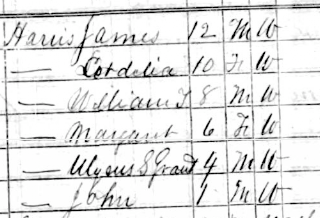 Harris James 12 M W
— Cordelia 10 F W
— William T 8 M W
— Margaret 6 F W
— Ulyces S Grant 4 M W
— John 1 M W